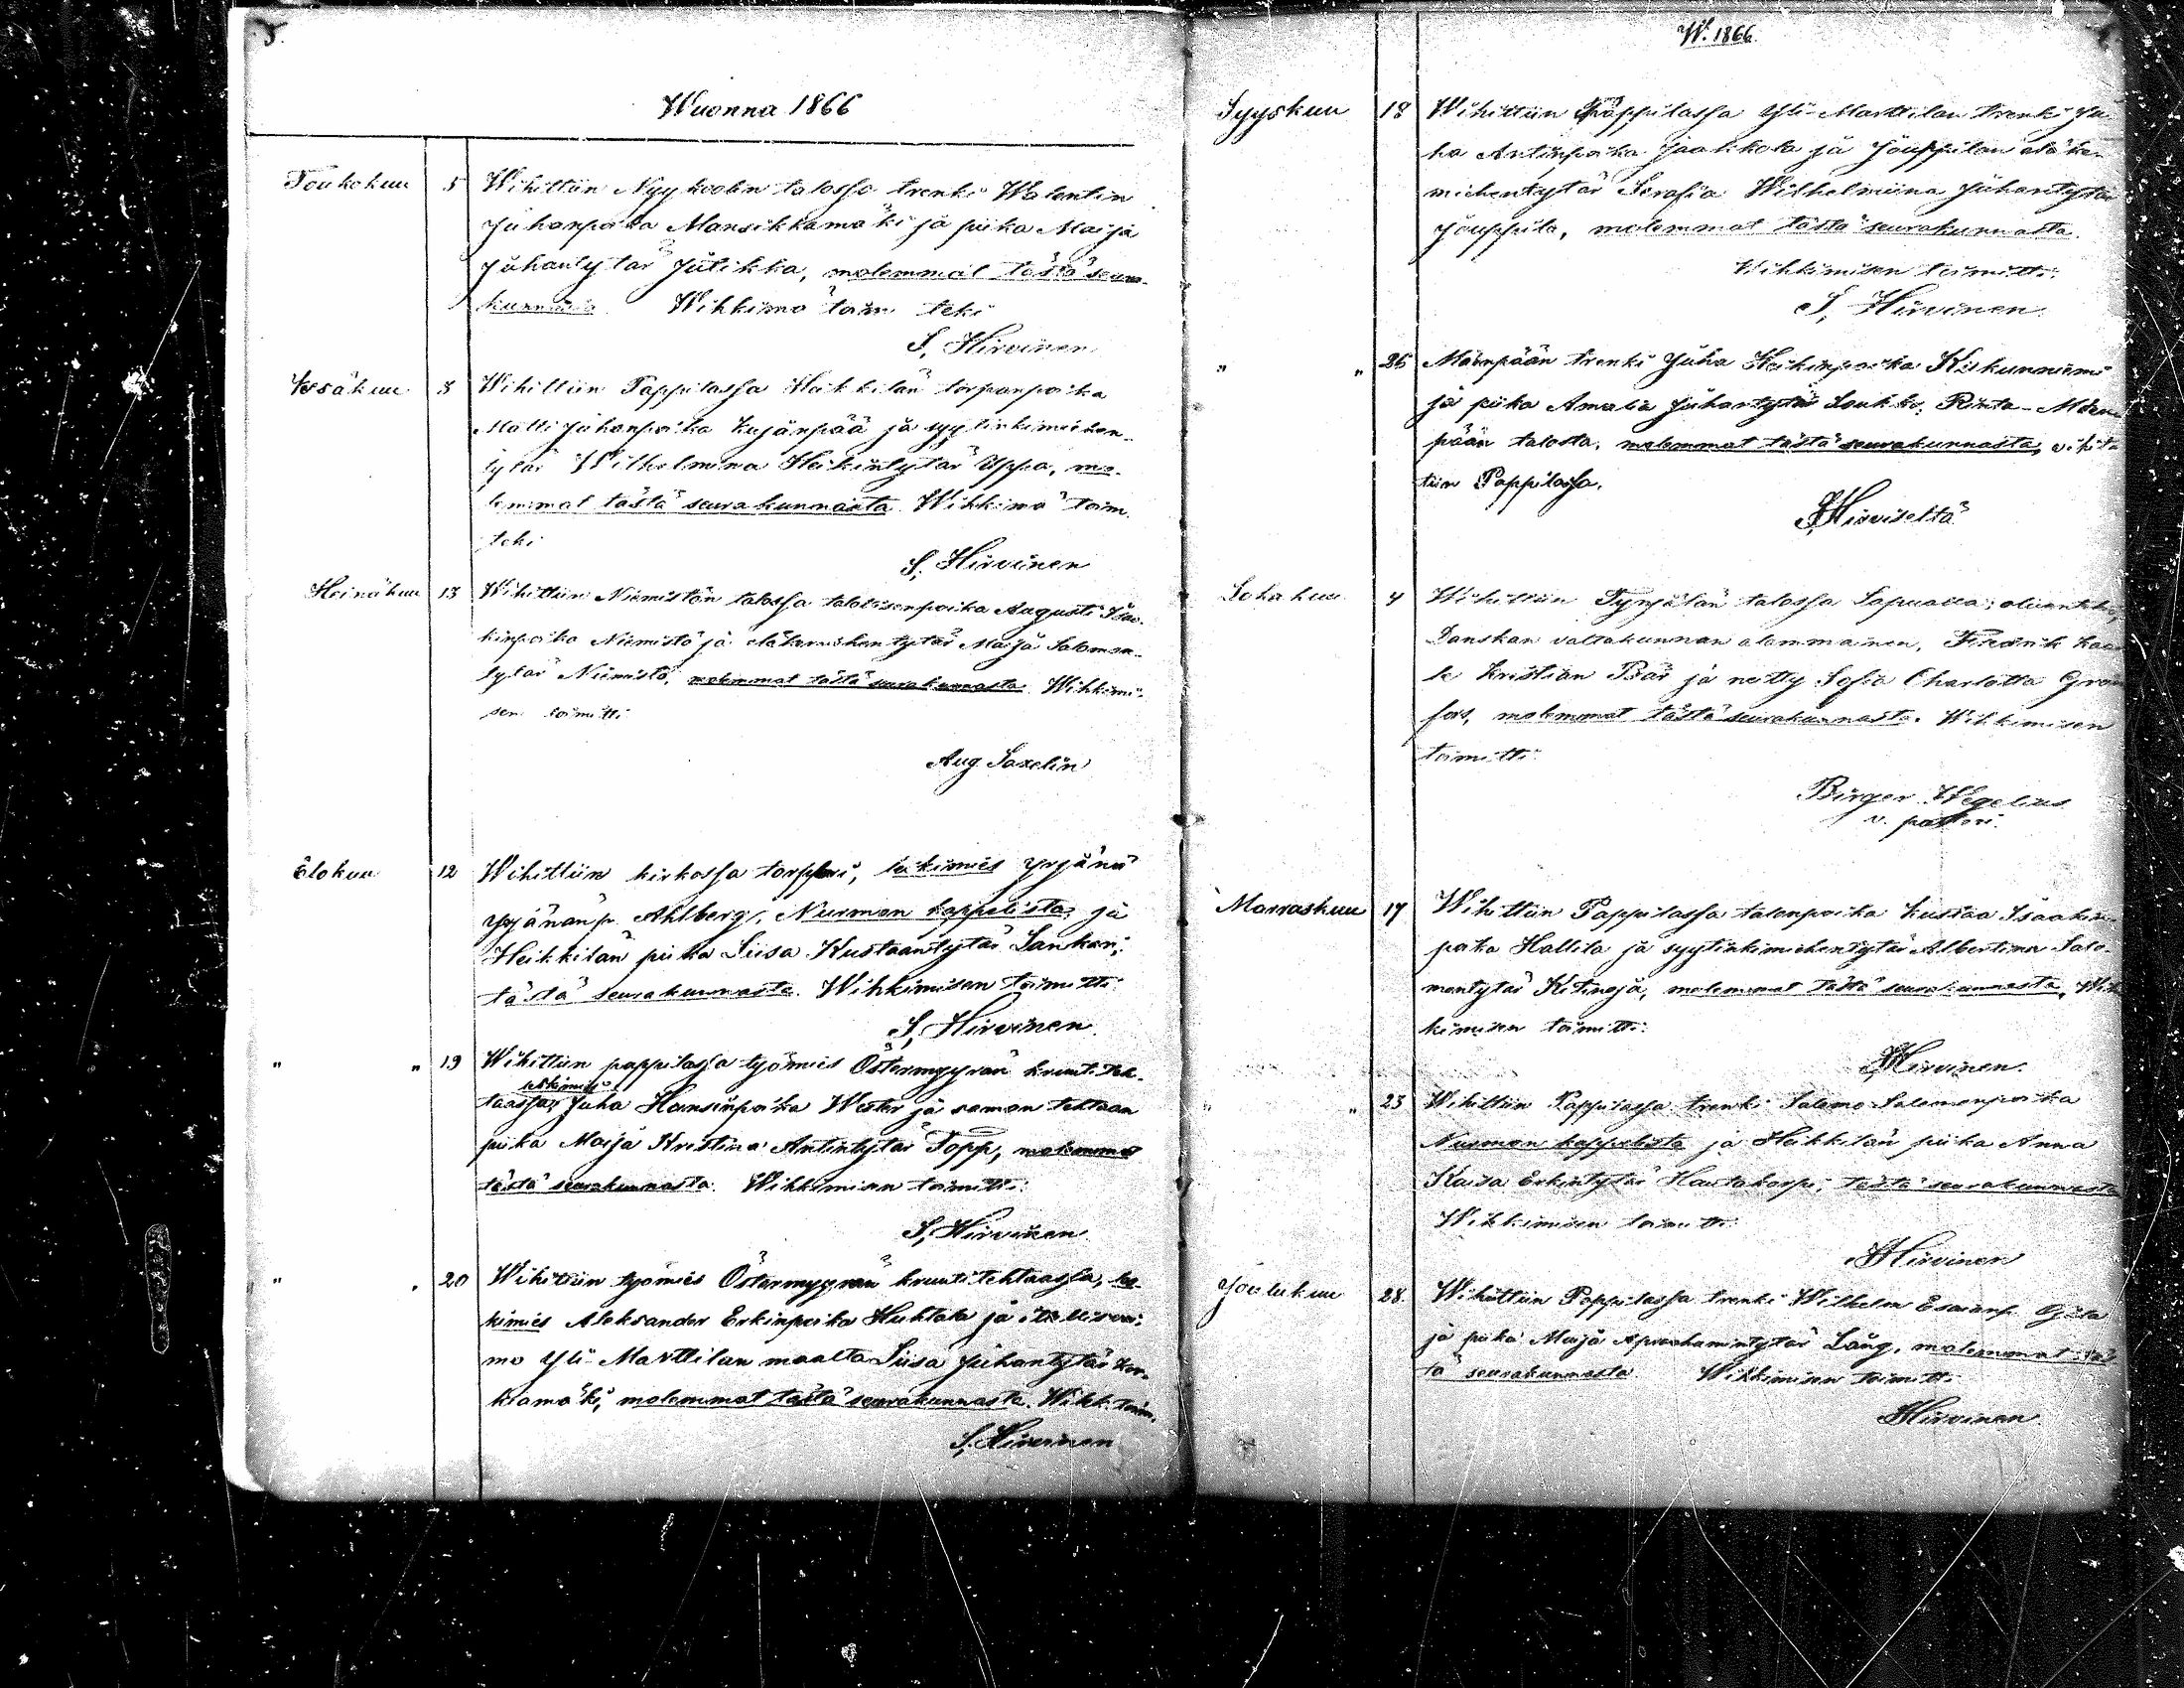 5.
Wuonna 1866
Toukokuu 5 Wihittiin Nyykoolin talossa trenki Walentin
Juhanpoika Mansikkamäki ja piika Maija
Juhantytär Jylikka, molemmat tästä seura-
kunnasta Wihkimä toim. teki
S. Hirvinen
Kesäkuu 3 Wihittiin Pappilassa Heikkilän torpanpoika
Matti Juhanpoika Kujanpää ja syytinkimiehen-
tytär Wilhelmina Heikintytär Uppa, mo-
lemmat tästä seurakunnasta Wihkimä toim.
teki
S. Hirvinen
Heinäkuu 13 Wihittiin Niemistön talossa talollisenpoika Augusti Isaa-
kinpoika Niemistö ja eläkemiehentytär Maija Salomon-
tytär Niemistö, molemmat tästä seurakunnasta Wihkimi-
sen toimitti
Aug. Saxelin
Elokuu 12 Wihittiin kirkossa torppari, leskimies Yrjänä
Yrjänänp. Ahlberg, Nurmon kappelista, ja
Heikkilän piika Liisa Kustaantytär Lankari,
tästä seurakunnasta. Wihkimisen toimitti
S. Hirvinen
" " 19 Wihittiin pappilassa työmies Östermyyrän kruuti teh-
leskimies
taassa, Juha Hansinpoika Wester ja saman tehtaan
piika Maija Kristina Antintytär Topp, molemmat
tästä seurakunnasta. Wihkimisen toimitti
S. Hirvinen
" " 20 Wihittiin työmies Östermyyrän kruutitehtaassa, les-
kimies Aleksander Erkinpoika Huhtala ja itsellisvai-
mo Yli-Marttilan maalta Liisa Juhantytär
molemmat tästä seurakunnasta. Wihk. toim.
S. Hirvinen
W. 1866.
Syyskuu 18 Wihittiin Pappilassa Yli-Marttilan trenki Ju-
ha Antinpoika Jaakkola ja Jouppilan eläke-
miehentytär Serafia Wilhelmiina Juhantytär
Jouppila, molemmat tästä seurakunnasta.
Wihkimisen toimitti
S. Hirvinen
" " 25 Määnpään trenki Juha Heikinpoika Kiskunniemi
ja piika Amalia Juhantytär Loukko, Rinta-Mään
pään talosta, molemmat tästä seurakunnasta, vihit
tiin Pappilassa.
S. Hirviseltä
Lokakuu 4 Wihittiin Tyrjälän talossa Lapualla;
Danskan valtakunnan alammainen, Fredrik Kaar
le Kristian Bär ja neitty Sofia Charlotta Grön
fors, molemmat tästä seurakunnasta. Wihkimisen
toimitti
Birger Wegelius
v. pastori.
Marraskuu 17 Wihittiin Pappilassa talonpoika Kustaa Isaakin
poika Hallila ja syytinkimiehentytär Albertina Salo-
montytär Ketinoja, molemmat tästä seurakunnasta. Wih
kimisen toimitti.
S. Hirvinen.
" " 23 Wihittiin Pappilassa trenki Salomo Salomonpoika
Nurmon kappelista ja Heikkilän piika Anna
Kaisa Erkintytär Hautakorpi, tästä seurakunnasta
Wihkimisen toimitti
S. Hirvinen
Joulukuu 28. Wihittiin Pappilassa trenki Wilhelm Esaianp.
ja piika Maija Aprahamintytär Lång, molemmat täs
tä seurakunnasta. Wihkimisen toimitti
S. Hirvinen